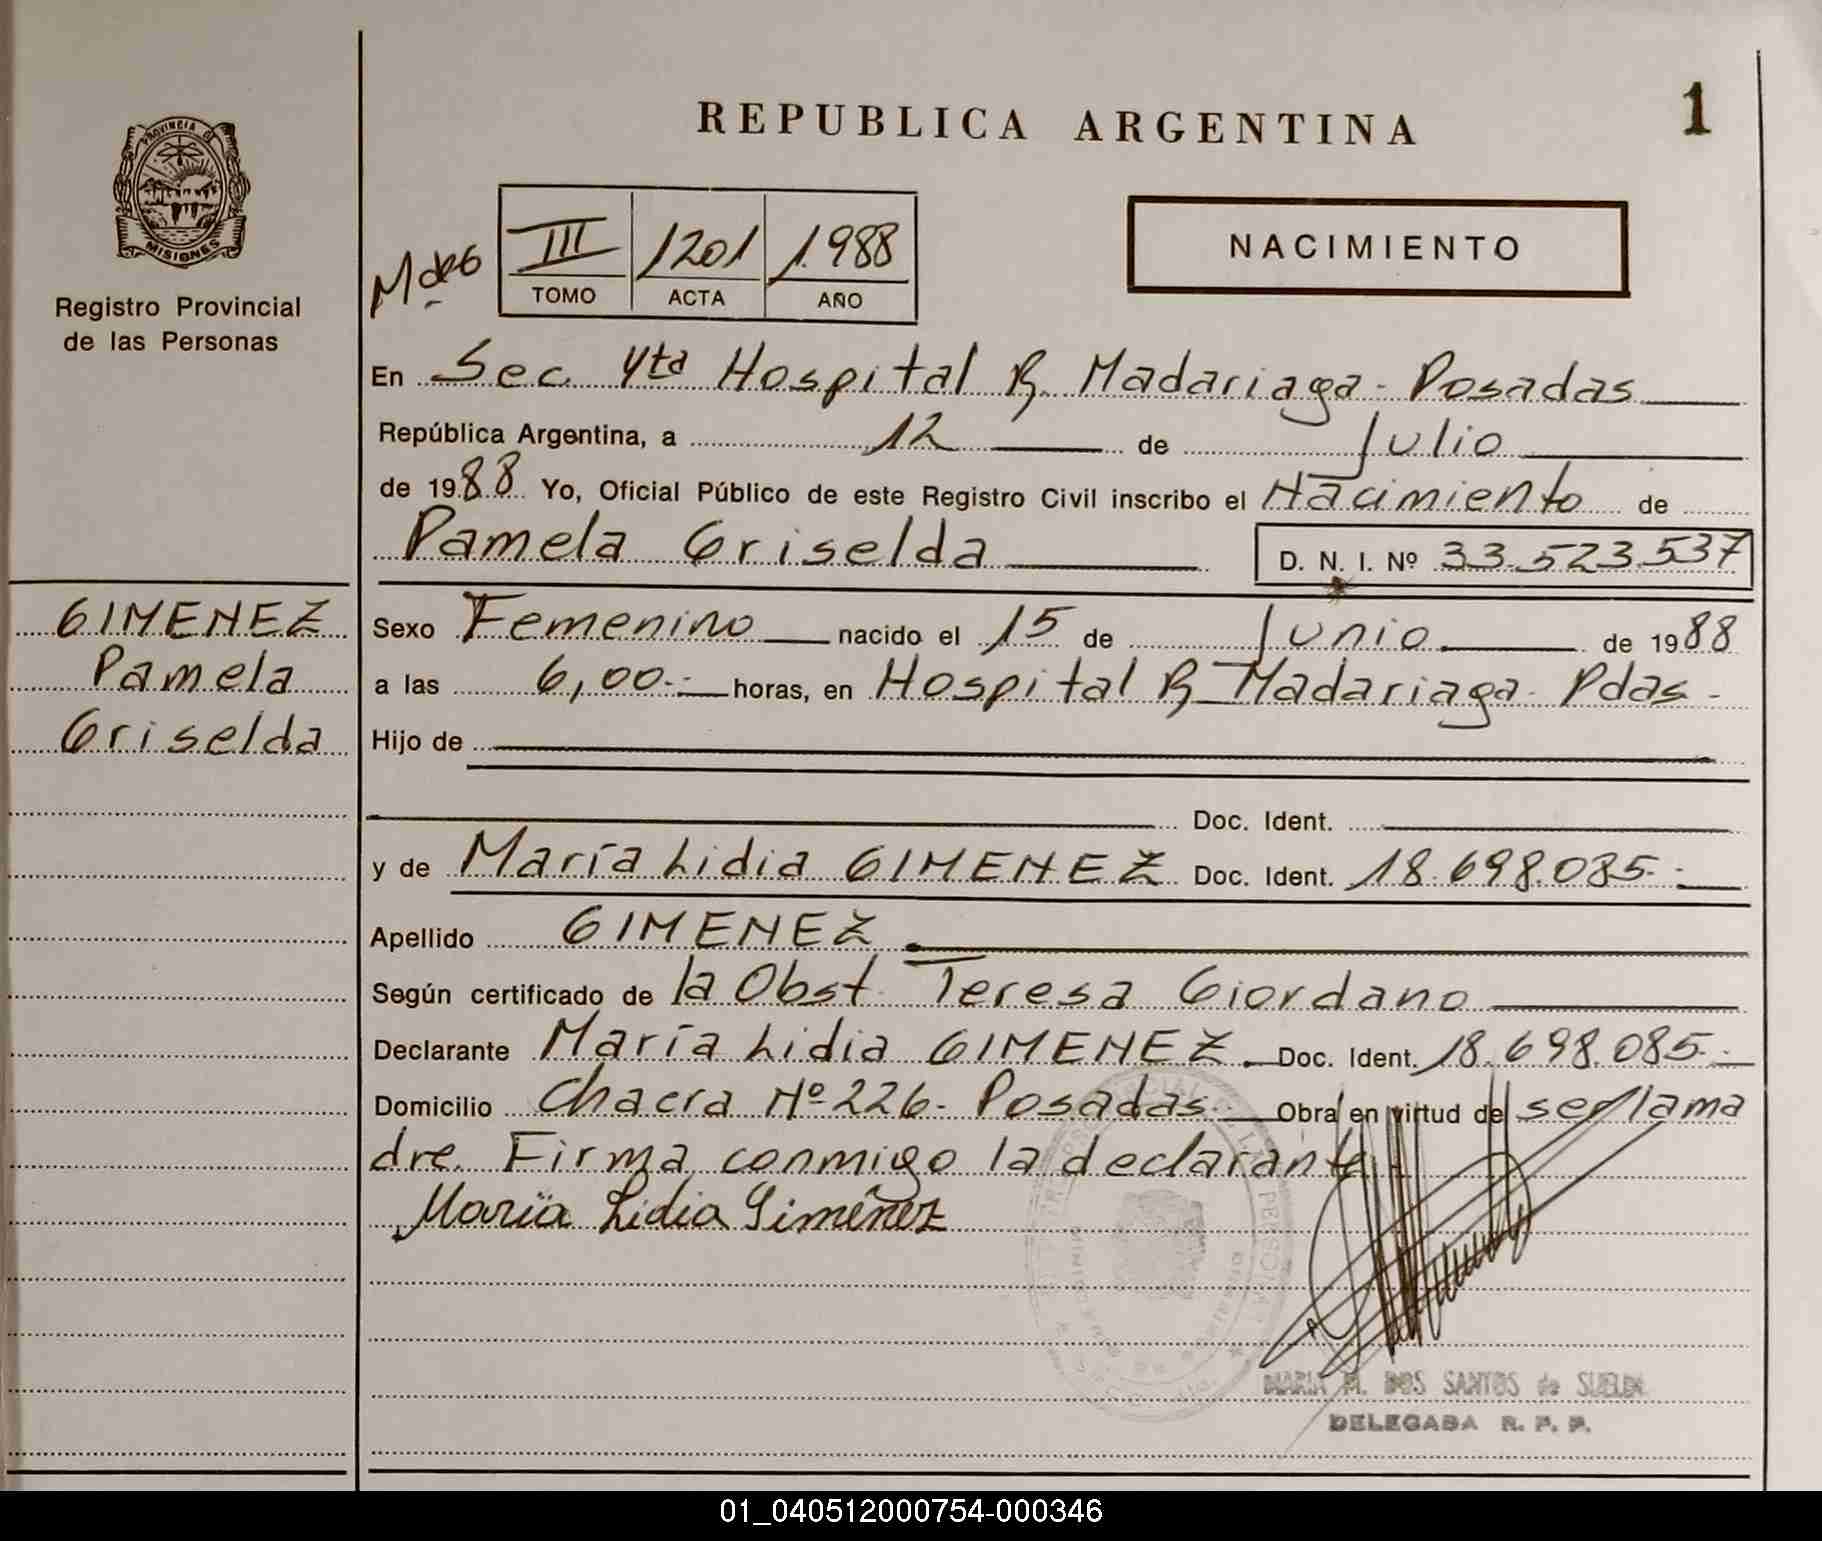 REPUBLICA ARGENTINA
1
PROVINCIA DE
MISIONES
Registro Provincial
de las Personas
III 1201 1.988
TOMO ACTA AÑO
NACIMIENTO
En Sec. 4ta Hospital R. Madariaga - Posadas
República Argentina, a 12 de Julio
de 1988 Yo, Oficial Público de este Registro Civil inscribo el Nacimiento de
Pamela Griselda D. N. I. Nº 33.523.537
GIMENEZ
Pamela
Griselda
Sexo Femenino nacido el 15 de Junio de 1988
a las 6,00.- horas, en Hospital R. Madariaga - Pdas -
Hijo de
Doc. Ident.
y de María Lidia GIMENEZ Doc. Ident. 18.698.085.-
Apellido GIMENEZ
Según certificado de la Obst. Teresa Giordano
Declarante María Lidia GIMENEZ. Doc. Ident. 18.698.085.-
Domicilio Chacra Nº 226 - Posadas Obra en virtud de ser la ma
dre. Firma conmigo la declarante
María Lidia Giménez
MARIA M. DOS SANTOS de
DELEGADA R. P. P.
01_040512000754-000346